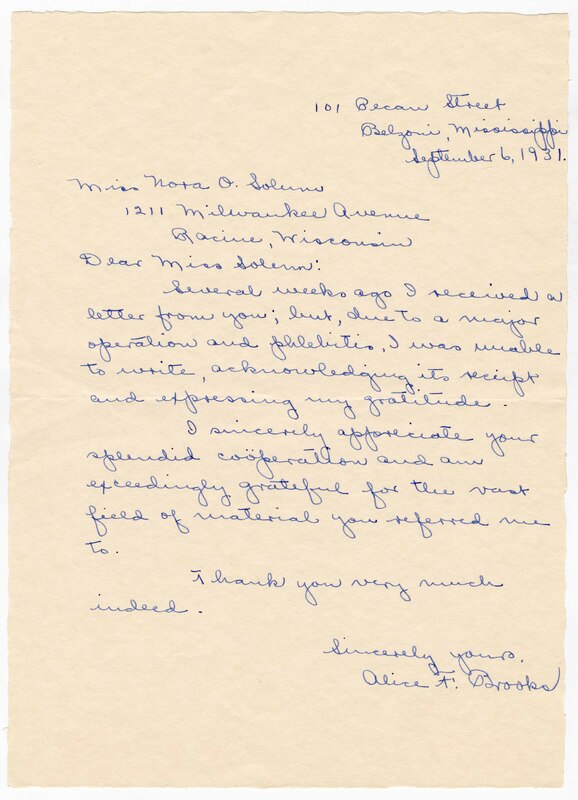 101 Pecan Street
Belzoni, Mississippi
September 6, 1931.
Miss Nora O. Solum
1211 Milwaukee Avenue
Racine, Wisconsin
Dear Miss Solum:
Several weeks ago I received a
letter from you; but, due to a major
operation and phlebitis, I was unable
to write, acknowledging its receipt
and expressing my gratitude.
I sincerely appreciate your
splendid coöperation and am
exceedingly grateful for the vast
field of material you referred me
to.
Thank you very much
indeed.
Sincerely yours,
Alice F. Brooks